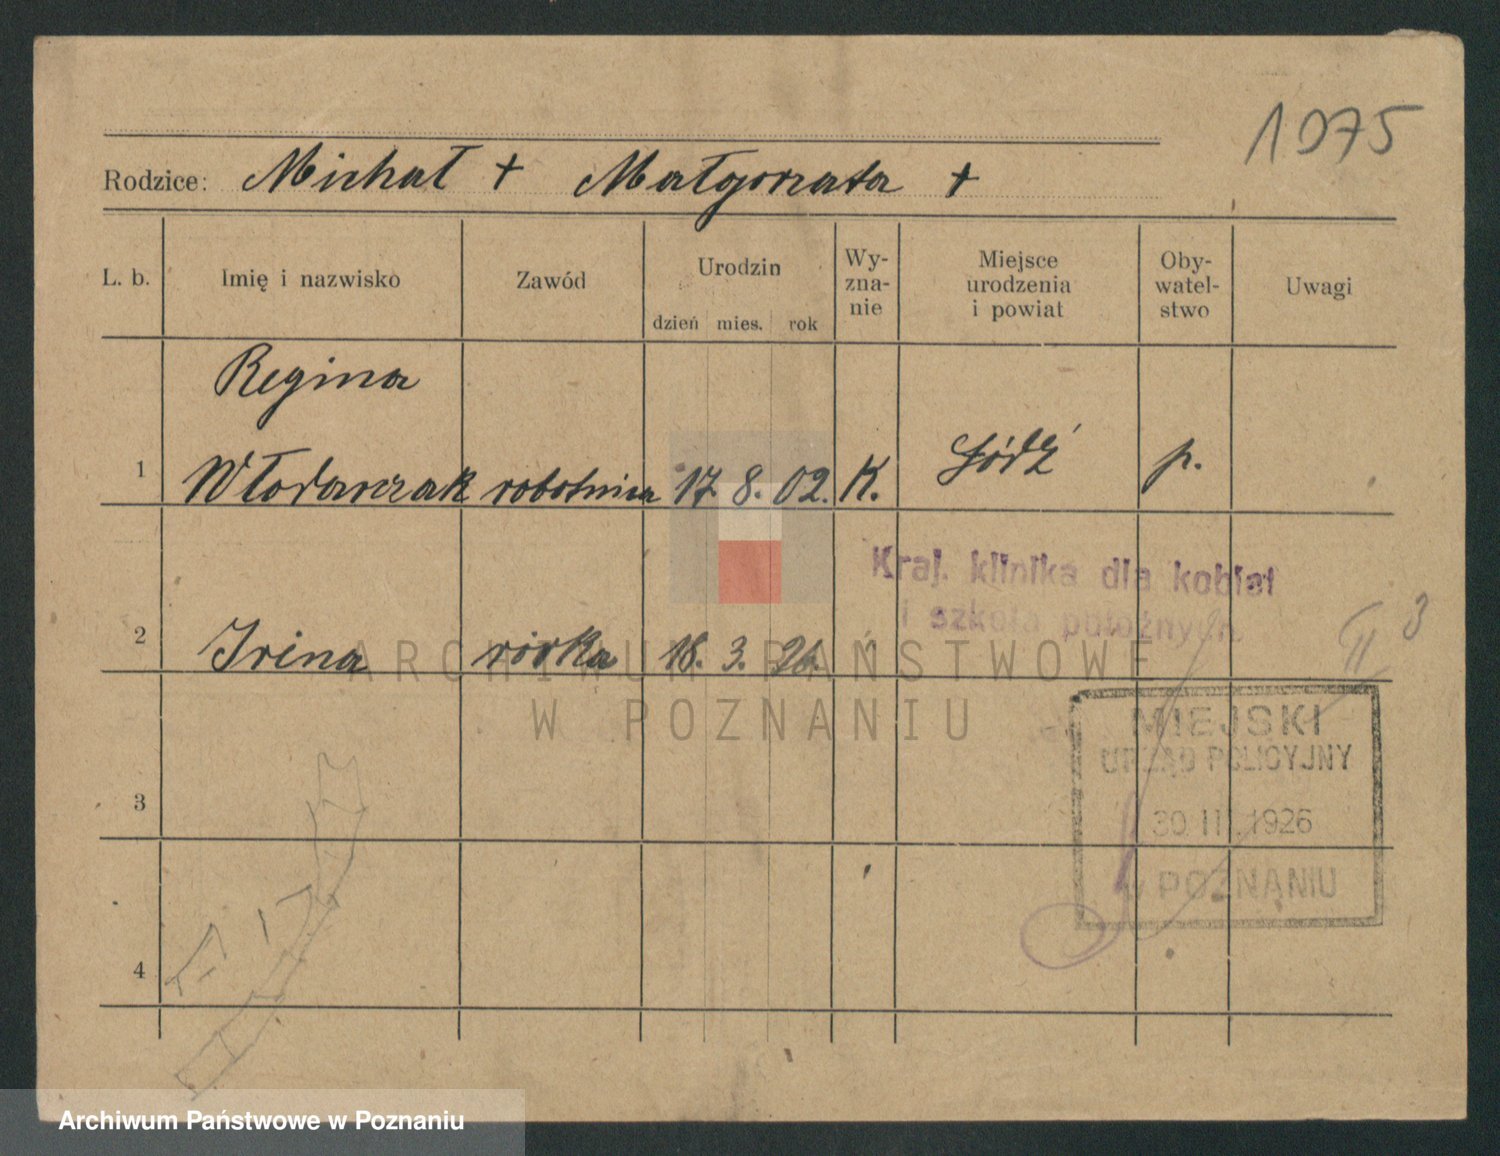 1975
Rodzice: Michał + Małgorzata +
L. b. Imię i nazwisko Zawód Urodzin dzień mies. rok Wy-zna-nie Miejsce urodzenia i powiat Oby-watel-stwo Uwagi
Regina
1 Włodarczak robotnica 17. 8. 02. K. Łódź p.
Kraj. klinika dla kobiet
i szkoła położnych
2 Irina córka 18. 3. 26.
ARCHIWUM PAŃSTWOWE
W POZNANIU
MIEJSKI
URZĄD POLICYJNY
30 III. 1926
w POZNANIU
3
4
Archiwum Państwowe w Poznaniu